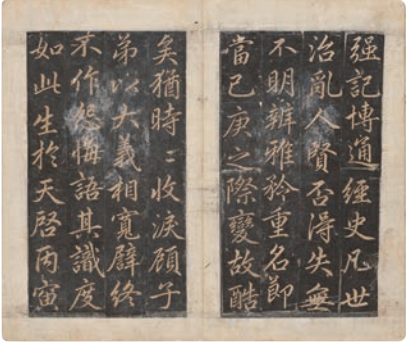 强記博通經史凡世
治亂人賢否得失無
不明辨雅矜重名節
當己庚之際變故酷
矣猶時〻收淚顧子
弟以大義相寬譬終
不作怨悔語其識度
如此生於天啓丙寅